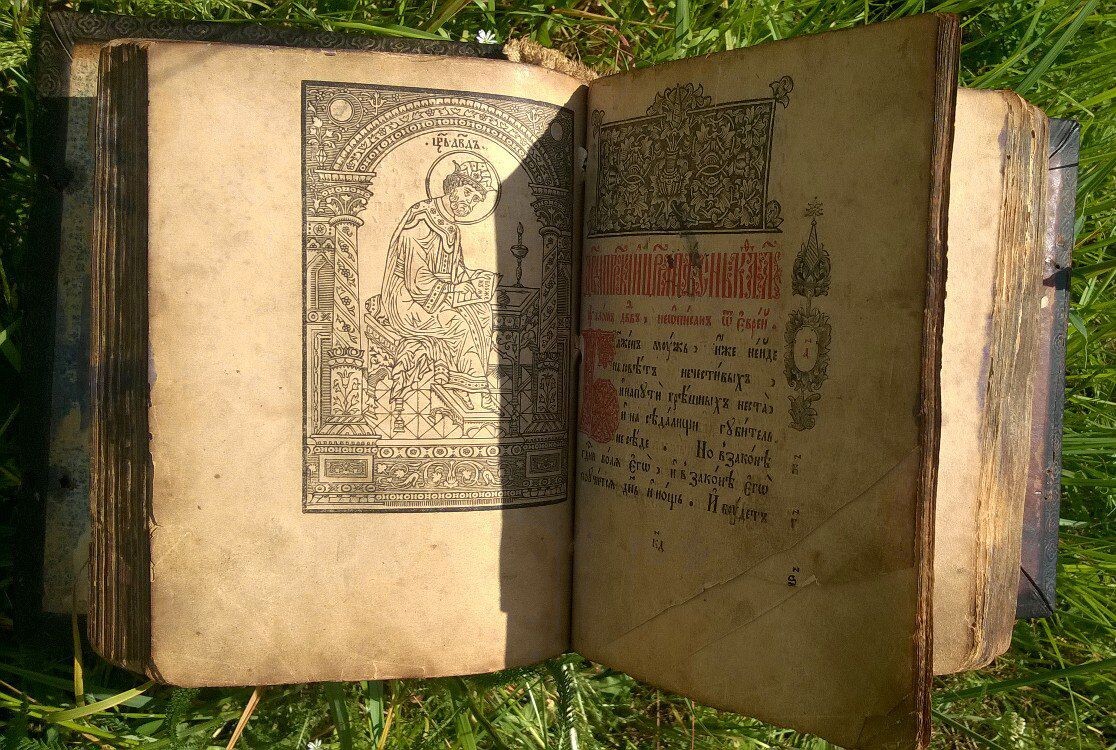 · цр҃ь · дв҃дъ ·
неѡписанъ ѿ є҆вре́й .
Блаже́нъ моу́жъ , и҆́же неи́де
насовѣ́тъ нечести́выхъ ,
и҆напутѝ грѣ́шныхъ неста̀ ,
и҆ на сѣда́лищи гꙋби́тель
несѣ́де . Но в҆зако́нѣ
гд҃ни во́лѧ є҆гѡ̀ , и҆ в҆зако́нѣ є҆гѡ̀
поꙋчи́тсѧ дн҃ь и҆ но́щь . И҆ бꙋ́детъ
в҃
г҃